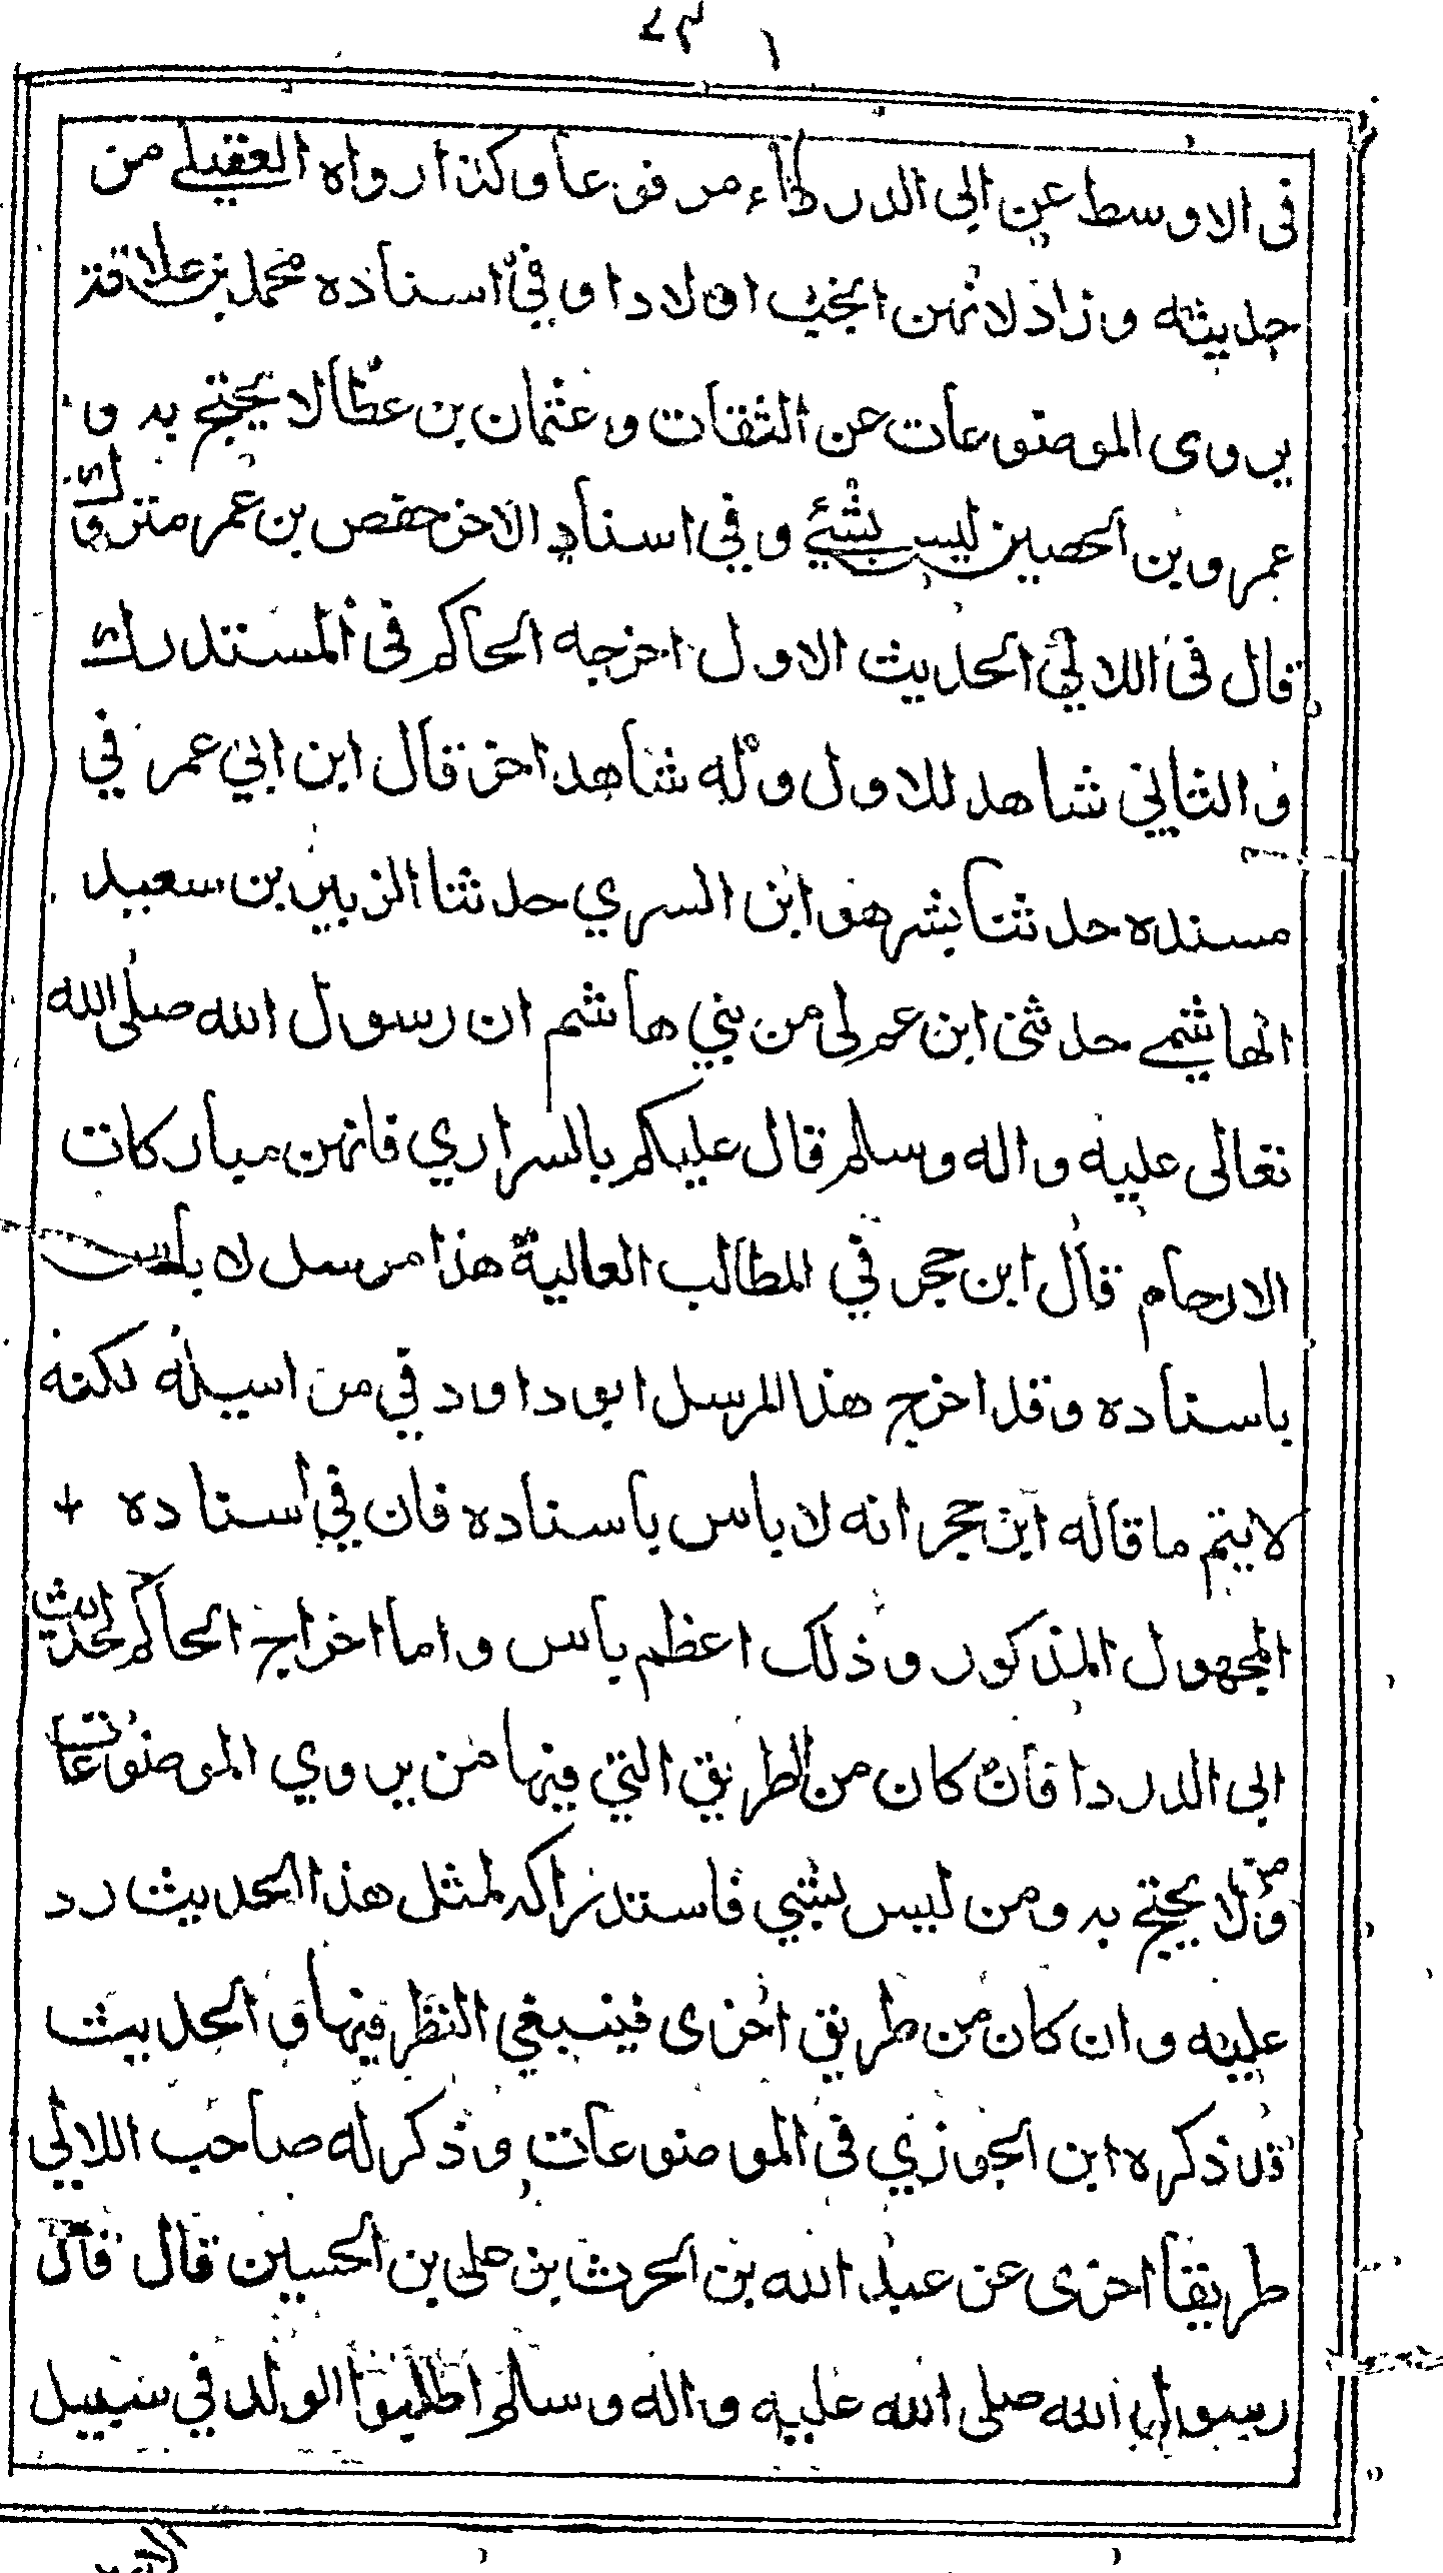 في الاوسط عن ابي الدرداء مرفوعا وكذا رواه العقيلي من
حديثه وزاد لانهن انجب اولادا وفي اسناده محمد بن علاقة
يروى الموضوعات عن الثقات وعثمان بن عطا لا يحتج به و
عمرو بن الحصين ليس بشئي وفي اسناد الاخر حفص بن عمر متروك
قال في اللالي الحديث الاول اخرجه الحاكم في المستدرك
والثاني شاهد للاول وله شاهد اخر قال ابن ابي عمر في
مسنده حدثنا بشر هو ابن السري حدثنا الزبير بن سعيد
الهاشمي حدثني ابن عم لي من بني هاشم ان رسول الله صلى الله
تعالى عليه واله وسلم قال عليكم بالسراري فانهن مباركات
الارحام قال ابن حجر في المطالب العالية هذا مرسل لا باس
باسناده وقد اخرج هذا المرسل ابو داود في مراسيله لكنه
لا يتم ما قاله ابن حجر انه لا باس باسناده فان في اسناده
المجهول المذكور وذلك اعظم باس واما اخراج الحاكم لحديث
ابي الدردا فان كان من الطريق التي فيها من يروي الموضوعات
ومن لا يحتج به ومن ليس بشي فاستدراكه لمثل هذا الحديث رد
عليه وان كان من طريق اخرى فينبغي النظر فيها و الحديث
قد ذكره ابن الجوزي في الموضوعات وذكر له صاحب اللالي
طريقا اخرى عن عبد الله بن الحرث بن علي بن الحسين قال قال
رسول الله صلى الله عليه واله وسلم اطلبوا الولد في سبيل